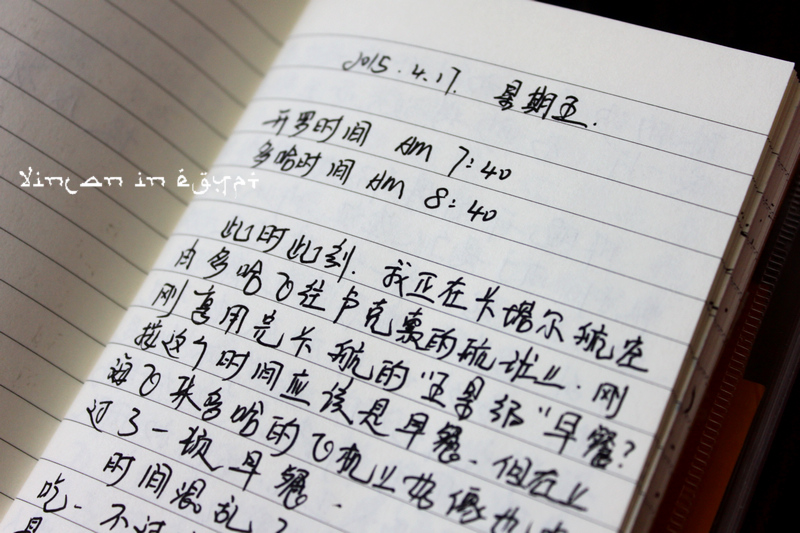 2015.4.17. 星期五.
开罗时间 AM 7:40
多哈时间 AM 8:40
Yincan in égypt
此时此刻. 我正在卡塔尔航空
由多哈飞往卢克索的航班上. 刚
刚享用完卡航的"五星级"早餐?
按这个时间应该是早餐. 但在上
海飞来多哈的飞机上好像也
过了一顿早餐.
时间混乱了
吃. 不过